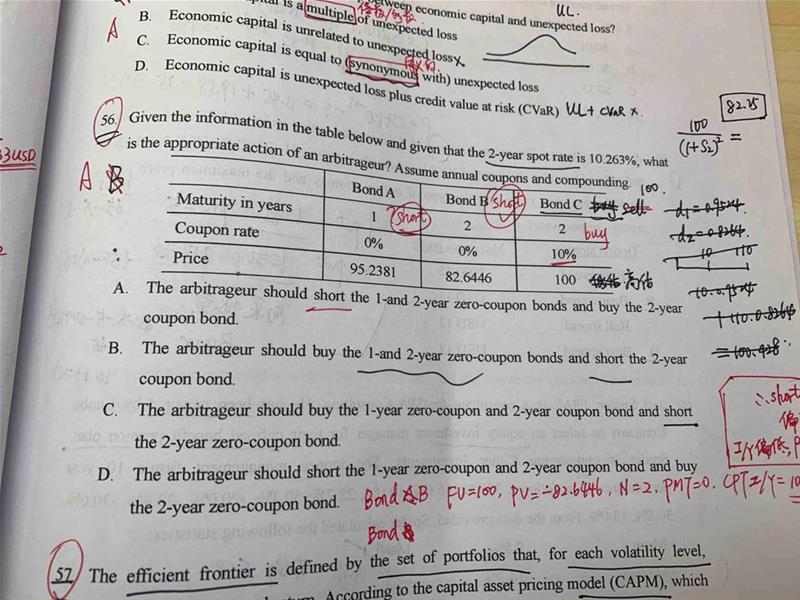 between economic capital and unexpected loss?
UL.
capital is a multiple of unexpected loss
B. Economic capital is unrelated to unexpected loss x
A
C. Economic capital is equal to (synonymous with) unexpected loss
D. Economic capital is unexpected loss plus credit value at risk (CVaR) UL + CVaR x.
82.25
56. Given the information in the table below and given that the 2-year spot rate is 10.263%, what
is the appropriate action of an arbitrageur? Assume annual coupons and compounding.
100
(1+S2)² =
3USD
A B
Bond A Bond B short Bond C 100.
Maturity in years 1 ?short 2 2 buy sell
buy
Coupon rate 0% 0% 10%
Price 95.2381 82.6446 100 高估
d1=0.9524
d2=0.8264
10 110
10·0.9524
+110·0.8264
=100.428
A. The arbitrageur should short the 1-and 2-year zero-coupon bonds and buy the 2-year
coupon bond.
B. The arbitrageur should buy the 1-and 2-year zero-coupon bonds and short the 2-year
coupon bond.
C. The arbitrageur should buy the 1-year zero-coupon and 2-year coupon bond and short
the 2-year zero-coupon bond.
D. The arbitrageur should short the 1-year zero-coupon and 2-year coupon bond and buy
the 2-year zero-coupon bond.
∴short
偏
I/Y偏低, P
Bond B FV=100, PV=-82.6446, N=2, PMT=0, CPT I/Y=10
Bond
57 The efficient frontier is defined by the set of portfolios that, for each volatility level,
According to the capital asset pricing model (CAPM), which